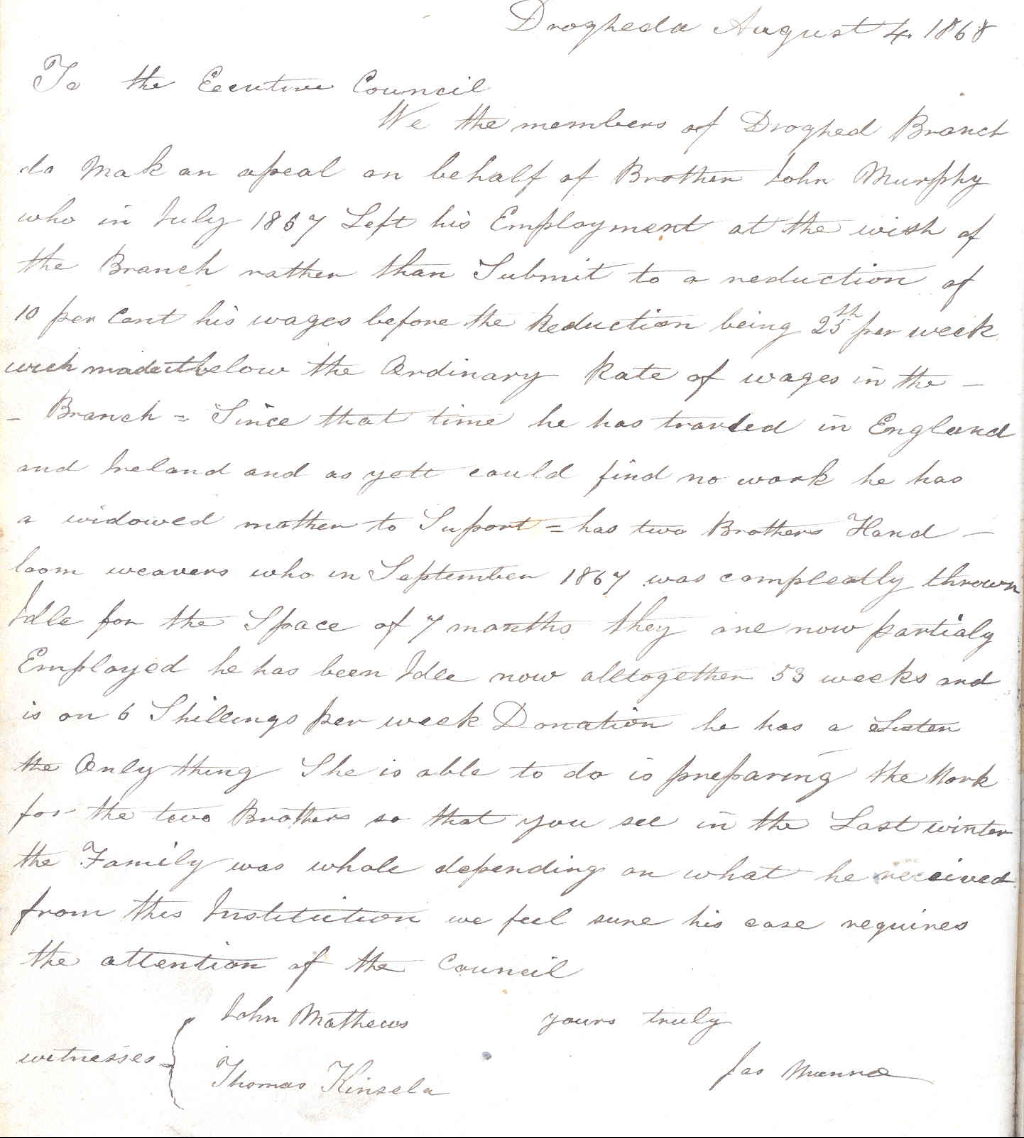 Drogheda August 4. 1868
To the Eecutive Council
We the members of Droghed Branch
do Mak an apeal on behalf of Brother John Murphy
who in July 1867 Left his Employment at the wish of
the Branch rather than Submit to a reduction of
10 per Cent his wages before the Reduction being 25sh per week
wich made it below the Ordinary Rate of wages in the -
- Branch = Since that time he has traveled in England
and Ireland and as yett could find no work he has
a widowed mother to Suport = has two Brothers Hand -
loom weavers who in September 1867 was compleatly thrown
Idle for the Space of 7 months they are now partialy
Employed he has been Idle now alltogether 53 weeks and
is on 6 Shillings per week Donation he has a Sister
the Only thing She is able to do is preparing the Work
for the two Brothers so that you see in the Last winter
the Family was whole depending on what he received
from this Institution we feel sure his case requires
the attention of the Council
John Mathews yours truly
witnesses
Thomas Kinsela Jas